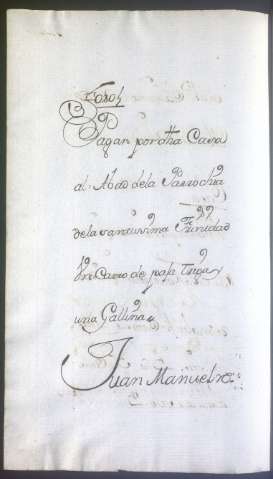 Foros
Pagan por dha Casa
al Abad dela Parrochia
dela santissima Trinidad
un Carro de paja Triga y
una Gallina.
Juan Manuel